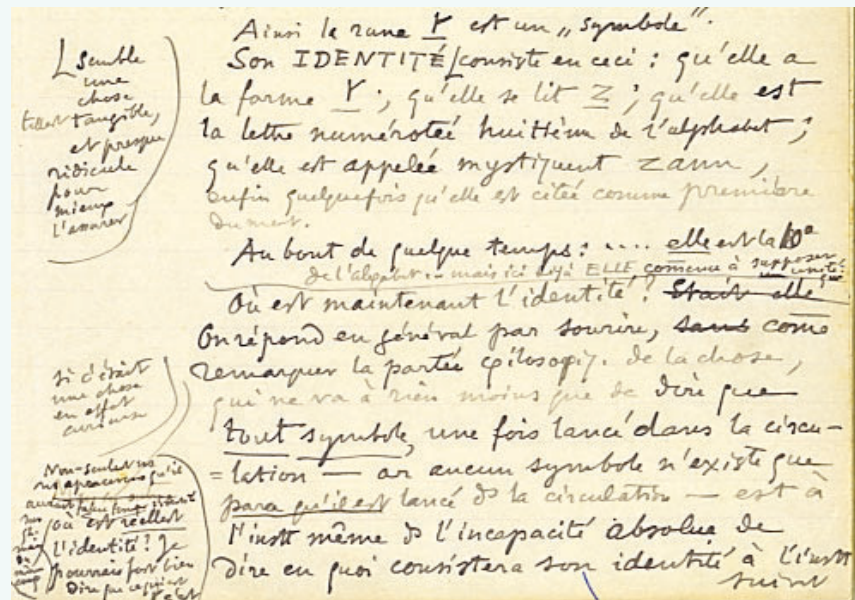 Ainsi la rune Y est un „symbole".
Son IDENTITÉ consiste en ceci : qu'elle a
la forme Y ; qu'elle se lit Z ; qu'elle est
la lettre numérotée huitième de l'alphabet ;
qu'elle est appelée mystiquent zann,
enfin quelquefois qu'elle est citée comme première
du mot.
Au bout de quelque temps : .... elle est la 10e
de l'alphabet.. mais ici déjà ELLE comence à supposer
une unité que
Où est maintenant l'identité ? Était elle
On répond en général par sourire, sans come
remarquer la portée philosophiq. de la chose,
qui ne va à rien moins que de dire que
tout symbole, une fois lancé dans la circu-
=lation — or aucun symbole n'existe que
parce qu'il est lancé ds la circulation — est à
l'instt même ds l'incapacité absolue de
dire en quoi consistera son identité à l'instt
suivnt
semble
une
chose
tellet tangible,
et presque
ridicule
pour
mieux
l'assurer
si c'était
une chose
en effet
curieuse
Non-seulemt
qu'il
où est réellet
l'identité ? Je
pourrais fort bien
dire que